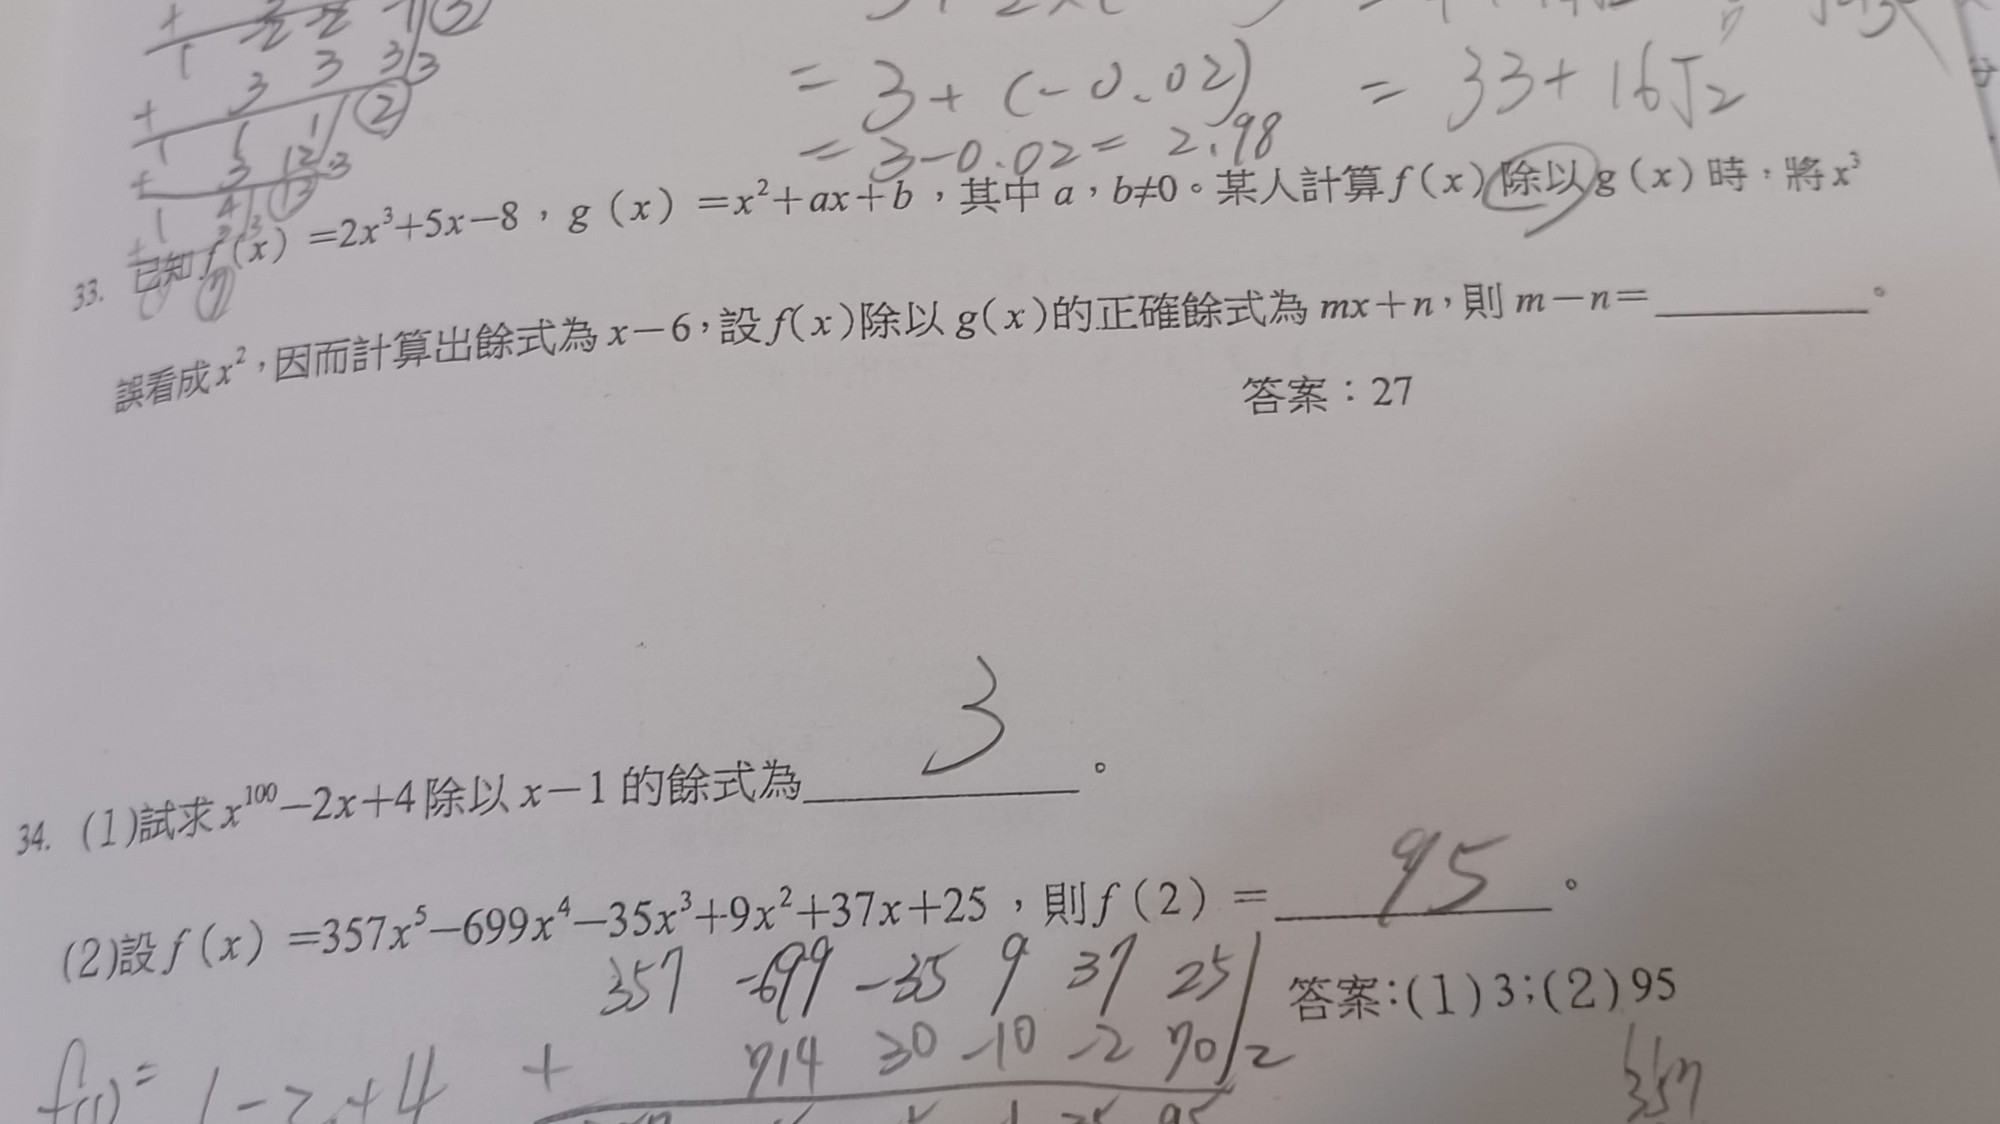 = 3+(-0.02) = 33+16√2
= 3-0.02 = 2.98
33. 已知f(x)=2x³+5x-8，g(x)=x²+ax+b，其中a，b≠0。某人計算f(x)除以g(x)時，將x³
誤看成x²，因而計算出餘式為x-6，設f(x)除以g(x)的正確餘式為mx+n，則m-n=________。
答案：27
3
34. (1)試求x¹⁰⁰-2x+4除以x-1的餘式為________。
95
(2)設f(x)=357x⁵-699x⁴-35x³+9x²+37x+25，則f(2)=________。
357 -699 -35 9 37 25
答案:(1)3;(2)95
+ 714 30 -10 -2 70 2
f(1)= 1-2+4
357